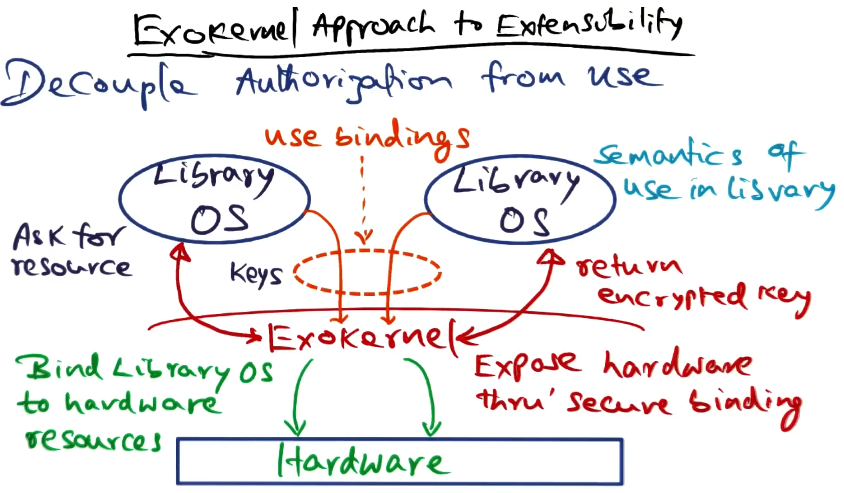 Exokernel Approach to Extensibility
Decouple Authorization from use
use bindings
Library
OS
Library
OS
semantics of
use in library
Ask for
resource
keys
return
encrypted key
Exokernel
Bind Library OS
to hardware
resources
Expose hardware
thru' secure binding
Hardware